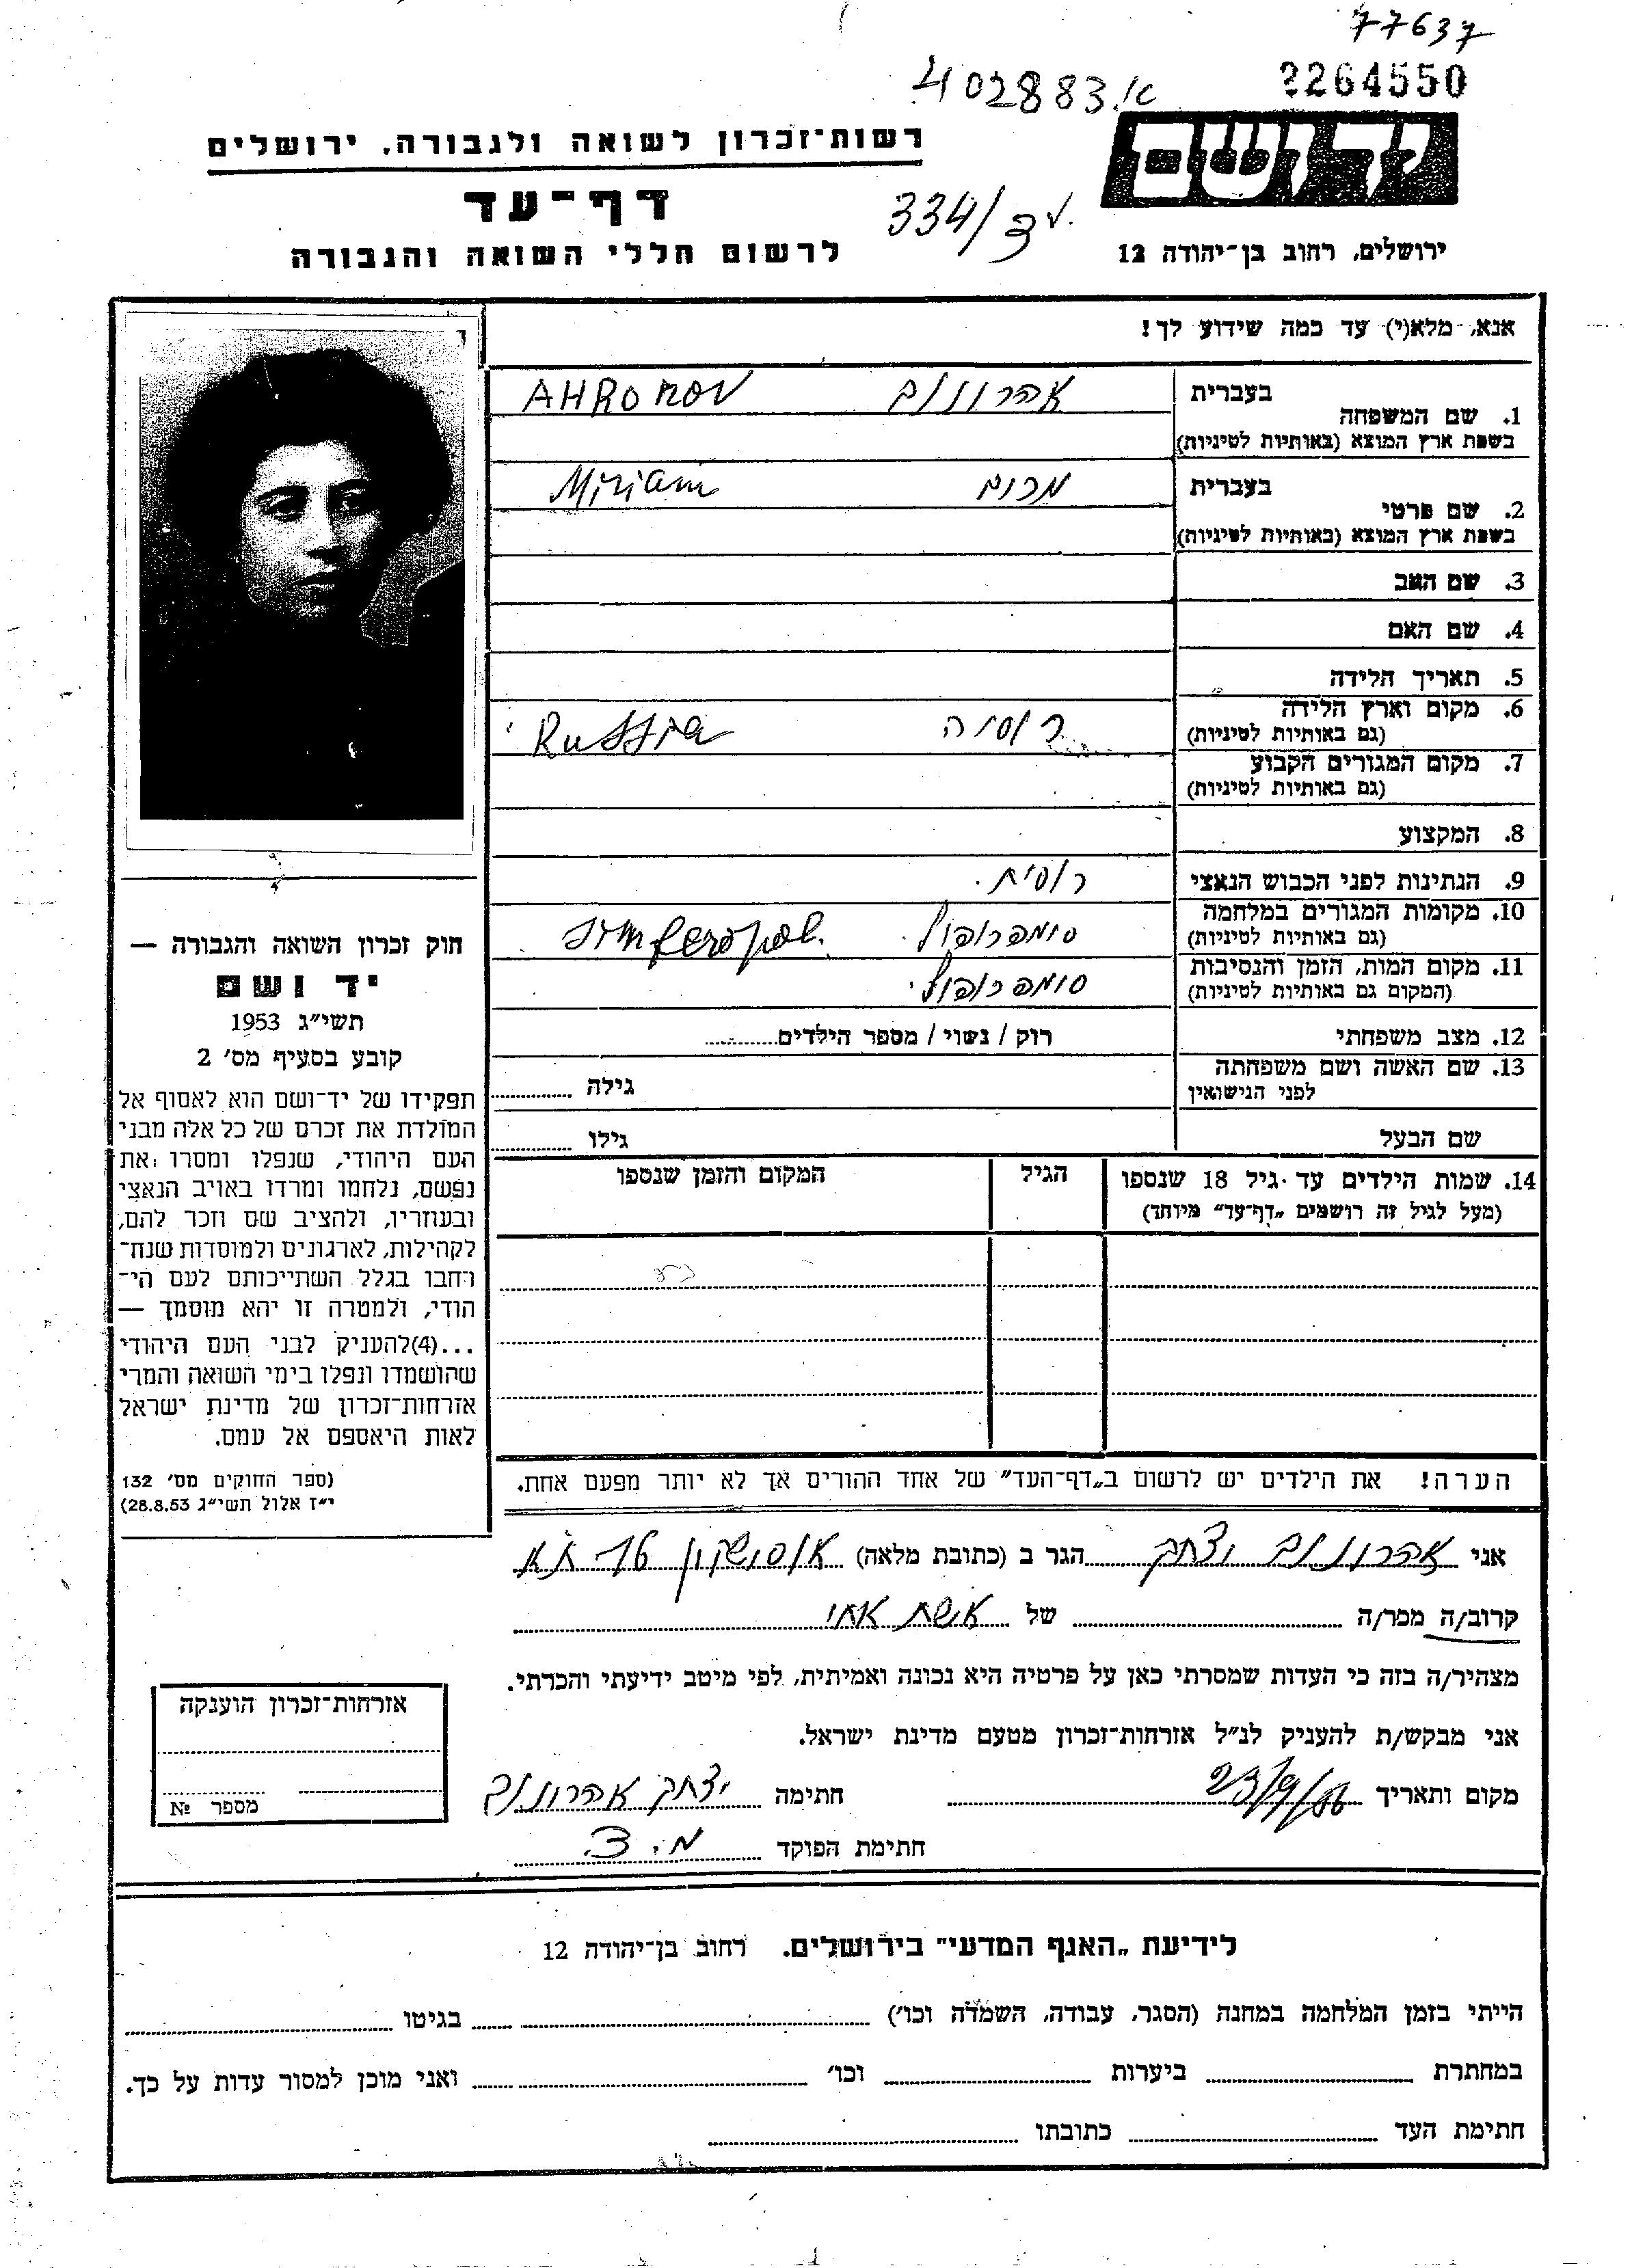 77637
402883.א'
2264550
רשות־זכרון לשואה ולגבורה, ירושלים
יד ושם
דף־עד
334/צד
לרשום חללי השואה והגבורה
ירושלים, רחוב בן־יהודה 12
אנא, מלא(י) עד כמה שידוע לך!
בעברית
1. שם המשפחה
בשפת ארץ המוצא (באותיות לטיניות)
אהרונוב AHRONOV
בעברית
2. שם פרטי
בשפת ארץ המוצא (באותיות לטיניות)
מרים Miriam
3. שם האב
4. שם האם
5. תאריך הלידה
6. מקום וארץ הלידה
(גם באותיות לטיניות)
רוסיה Russia
7. מקום המגורים הקבוע
(גם באותיות לטיניות)
8. המקצוע
9. הנתינות לפני הכבוש הנאצי
רוסית.
10. מקומות המגורים במלחמה
(גם באותיות לטיניות)
סימפרופול. Simferopol.
11. מקום המות, הזמן והנסיבות
(המקום גם באותיות לטיניות)
סימפרופול.
12. מצב משפחתי רוק / נשוי / מספר הילדים............
13. שם האשה ושם משפחתה
לפני הנישואין
גילה ............
שם הבעל גילו ............
14. שמות הילדים עד גיל 18 שנספו
(מעל לגיל זה רושמים „דף־עד" מיוחד)
הגיל
המקום והזמן שנספו
הערה! את הילדים יש לרשום ב„דף־העד" של אחד ההורים אך לא יותר מפעם אחת.
חוק זכרון השואה והגבורה —
יד ושם
תשי"ג 1953
קובע בסעיף מס' 2
תפקידו של יד־ושם הוא לאסוף אל
המולדת את זכרם של כל אלה מבני
העם היהודי, שנפלו ומסרו את
נפשם, נלחמו ומרדו באויב הנאצי
ובעוזריו, ולהציב שם וזכר להם,
לקהילות, לארגונים ולמוסדות שנח־
רחבו בגלל השתייכותם לעם הי־
הודי, ולמטרה זו יהא מוסמך —
...(4)להעניק לבני העם היהודי
שהושמדו ונפלו בימי השואה והמרי
אזרחות־זכרון של מדינת ישראל
לאות היאספם אל עמם.
(ספר החוקים מס' 132
י"ז אלול תשי"ג 28.8.53)
אני אהרונוב יצחק הגר ב (כתובת מלאה) אוסושקין 16 ת"א
קרוב/ה מכר/ה של אשת אחי
מצהיר/ה בזה כי העדות שמסרתי כאן על פרטיה היא נכונה ואמיתית, לפי מיטב ידיעתי והכרתי.
אני מבקש/ת להעניק לנ"ל אזרחות־זכרון מטעם מדינת ישראל.
מקום ותאריך 23/9/56 חתימה יצחק אהרונוב
חתימת הפוקד מ. צ.
אזרחות־זכרון הוענקה
מספר №
לידיעת „האגף המדעי" בירושלים. רחוב בן־יהודה 12
הייתי בזמן המלחמה במחנה (הסגר, עבודה, השמדה וכו') בגיטו
במחתרת ביערות וכו' ואני מוכן למסור עדות על כך.
חתימת העד כתובתו